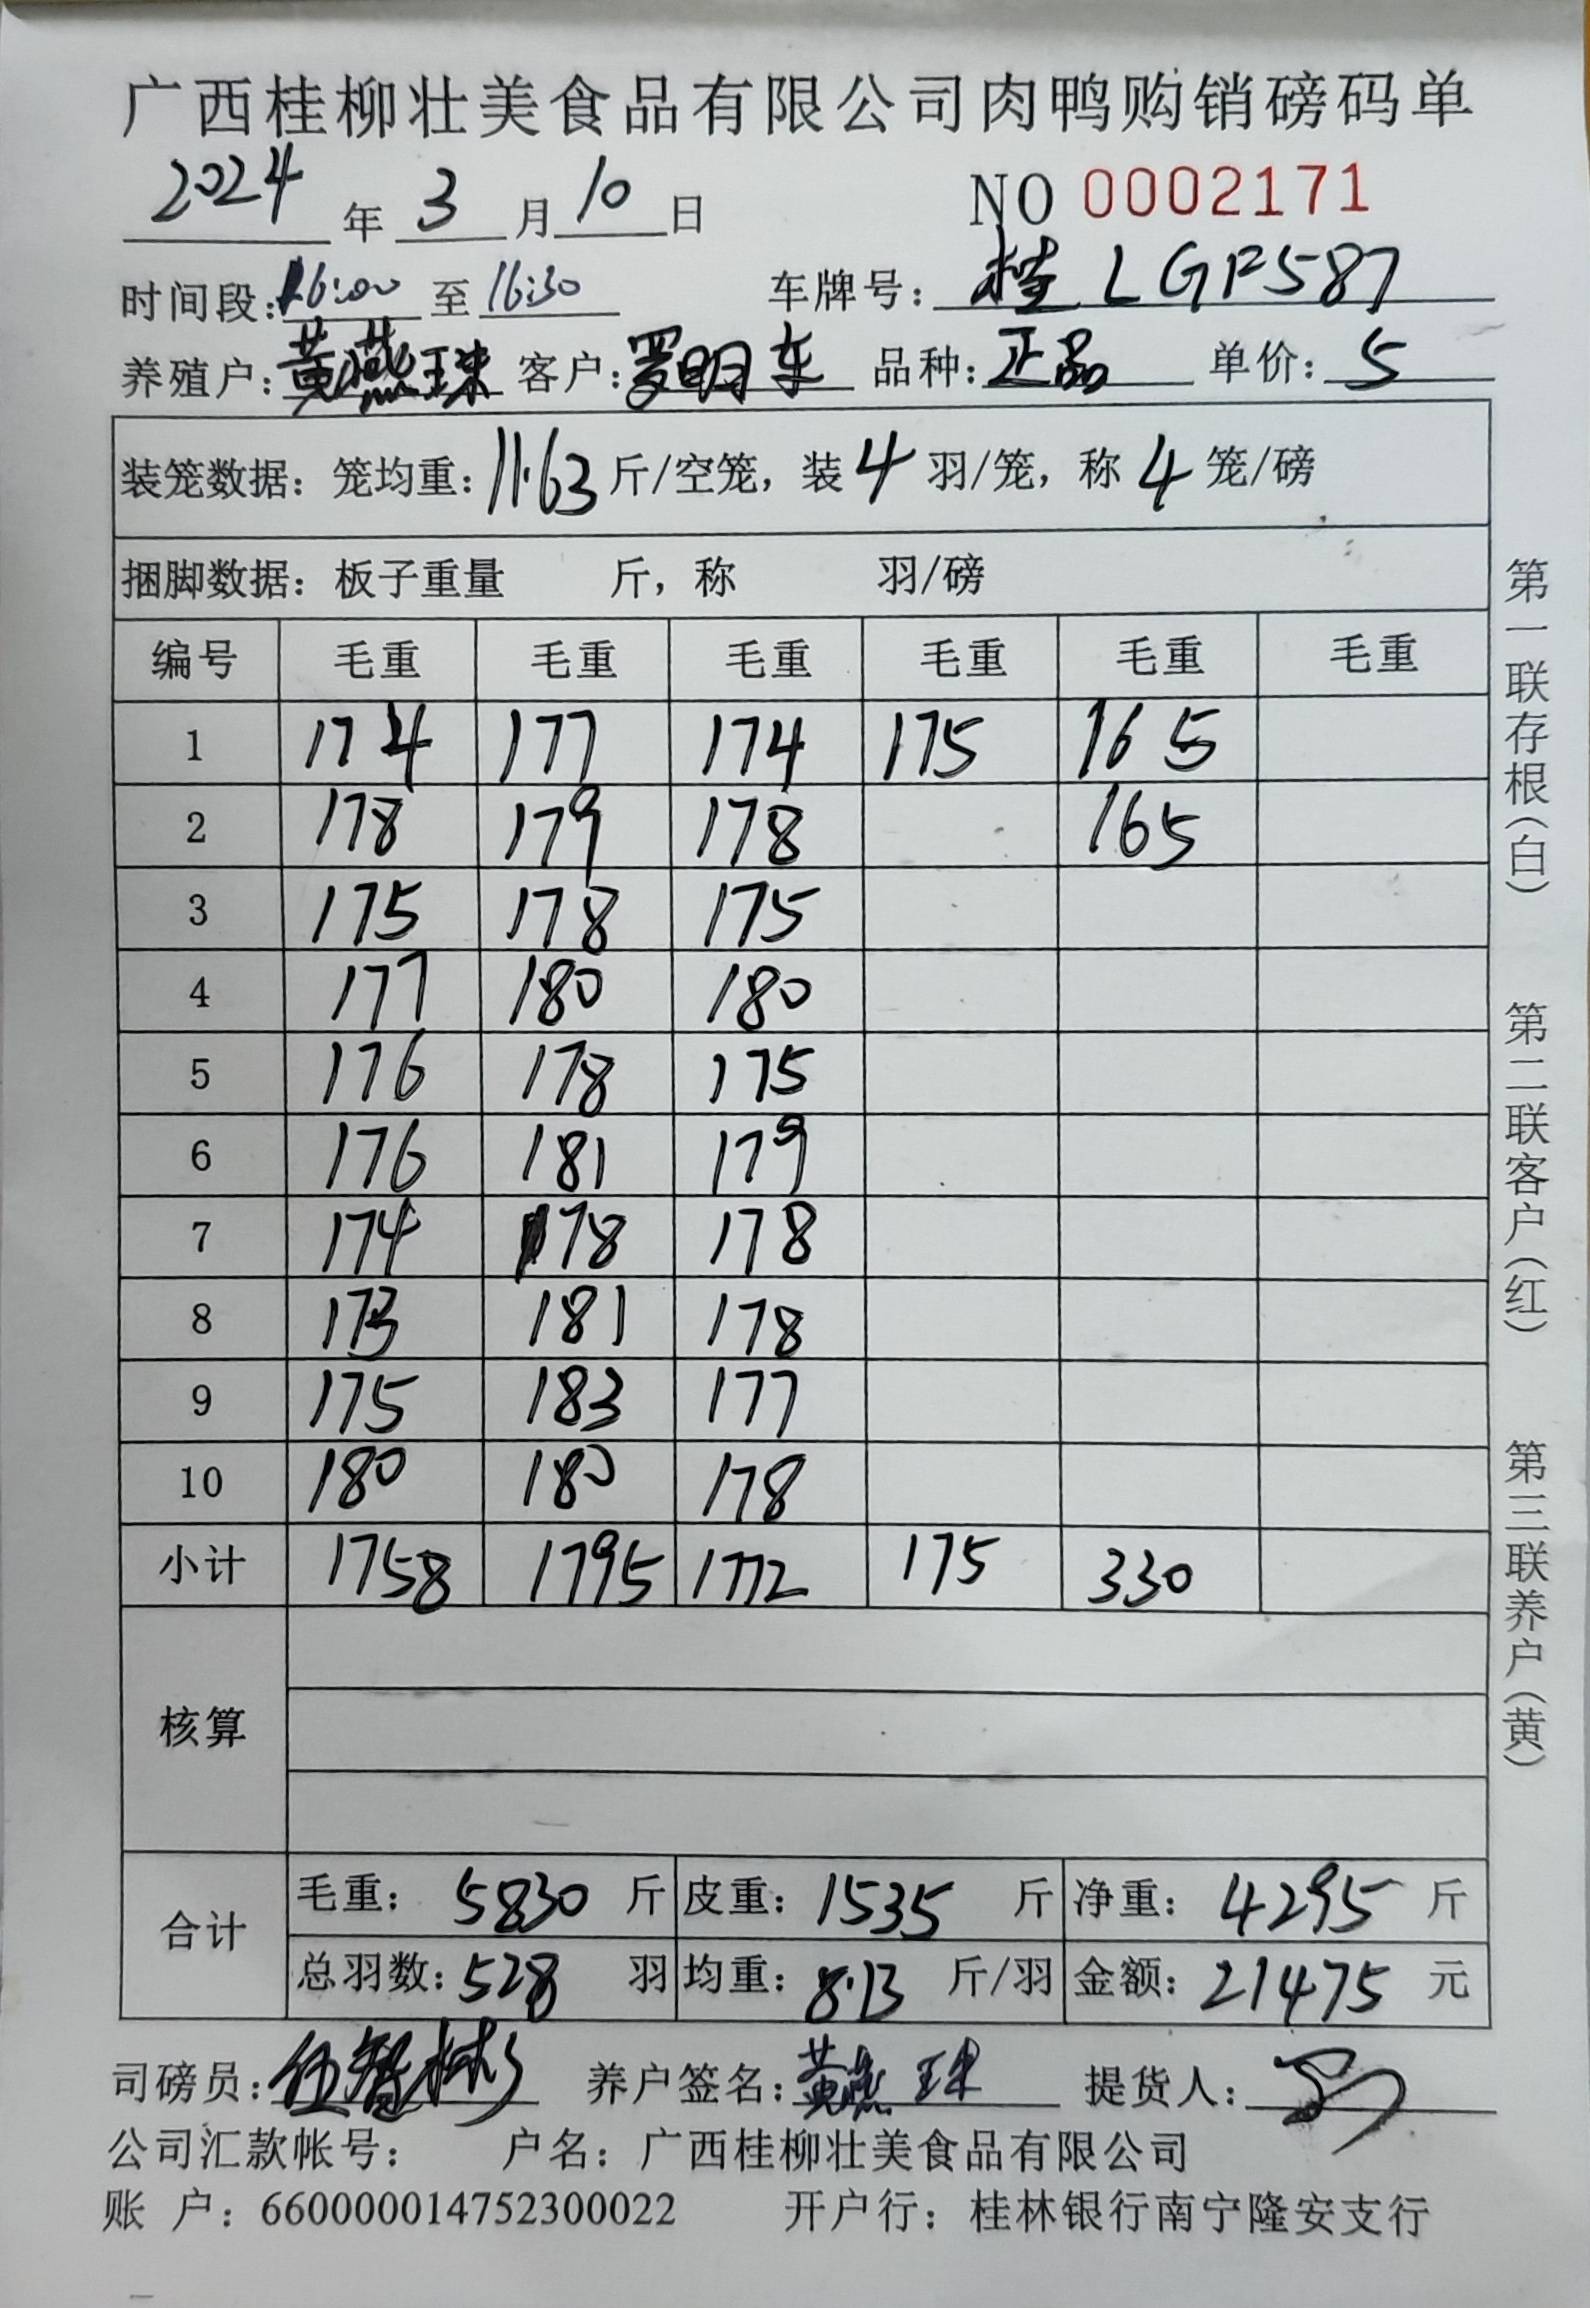 广西桂柳壮美食品有限公司肉鸭购销磅码单
2024年3月10日 NO 0002171
时间段:16:00至16:30 车牌号:桂LGF587
养殖户:黄燕珠 客户:罗明东 品种:正品 单价:5
装笼数据:笼均重:11.63斤/空笼,装4羽/笼,称4笼/磅
捆脚数据:板子重量 斤,称 羽/磅
编号 毛重 毛重 毛重 毛重 毛重 毛重
1 174 177 174 175 165
2 178 179 178 165
3 175 178 175
4 177 180 180
5 176 178 175
6 176 181 179
7 174 178 178
8 173 181 178
9 175 183 177
10 180 180 178
小计 1758 1795 1772 175 330
核算
合计 毛重:5830斤 皮重:1535斤 净重:4295斤
总羽数:528羽 均重:8.13斤/羽 金额:21475元
司磅员:伍智彬 养户签名:黄燕珠 提货人:
公司汇款帐号: 户名:广西桂柳壮美食品有限公司
账 户:660000014752300022 开户行:桂林银行南宁隆安支行
第一联存根(白) 第二联客户(红) 第三联养户(黄)